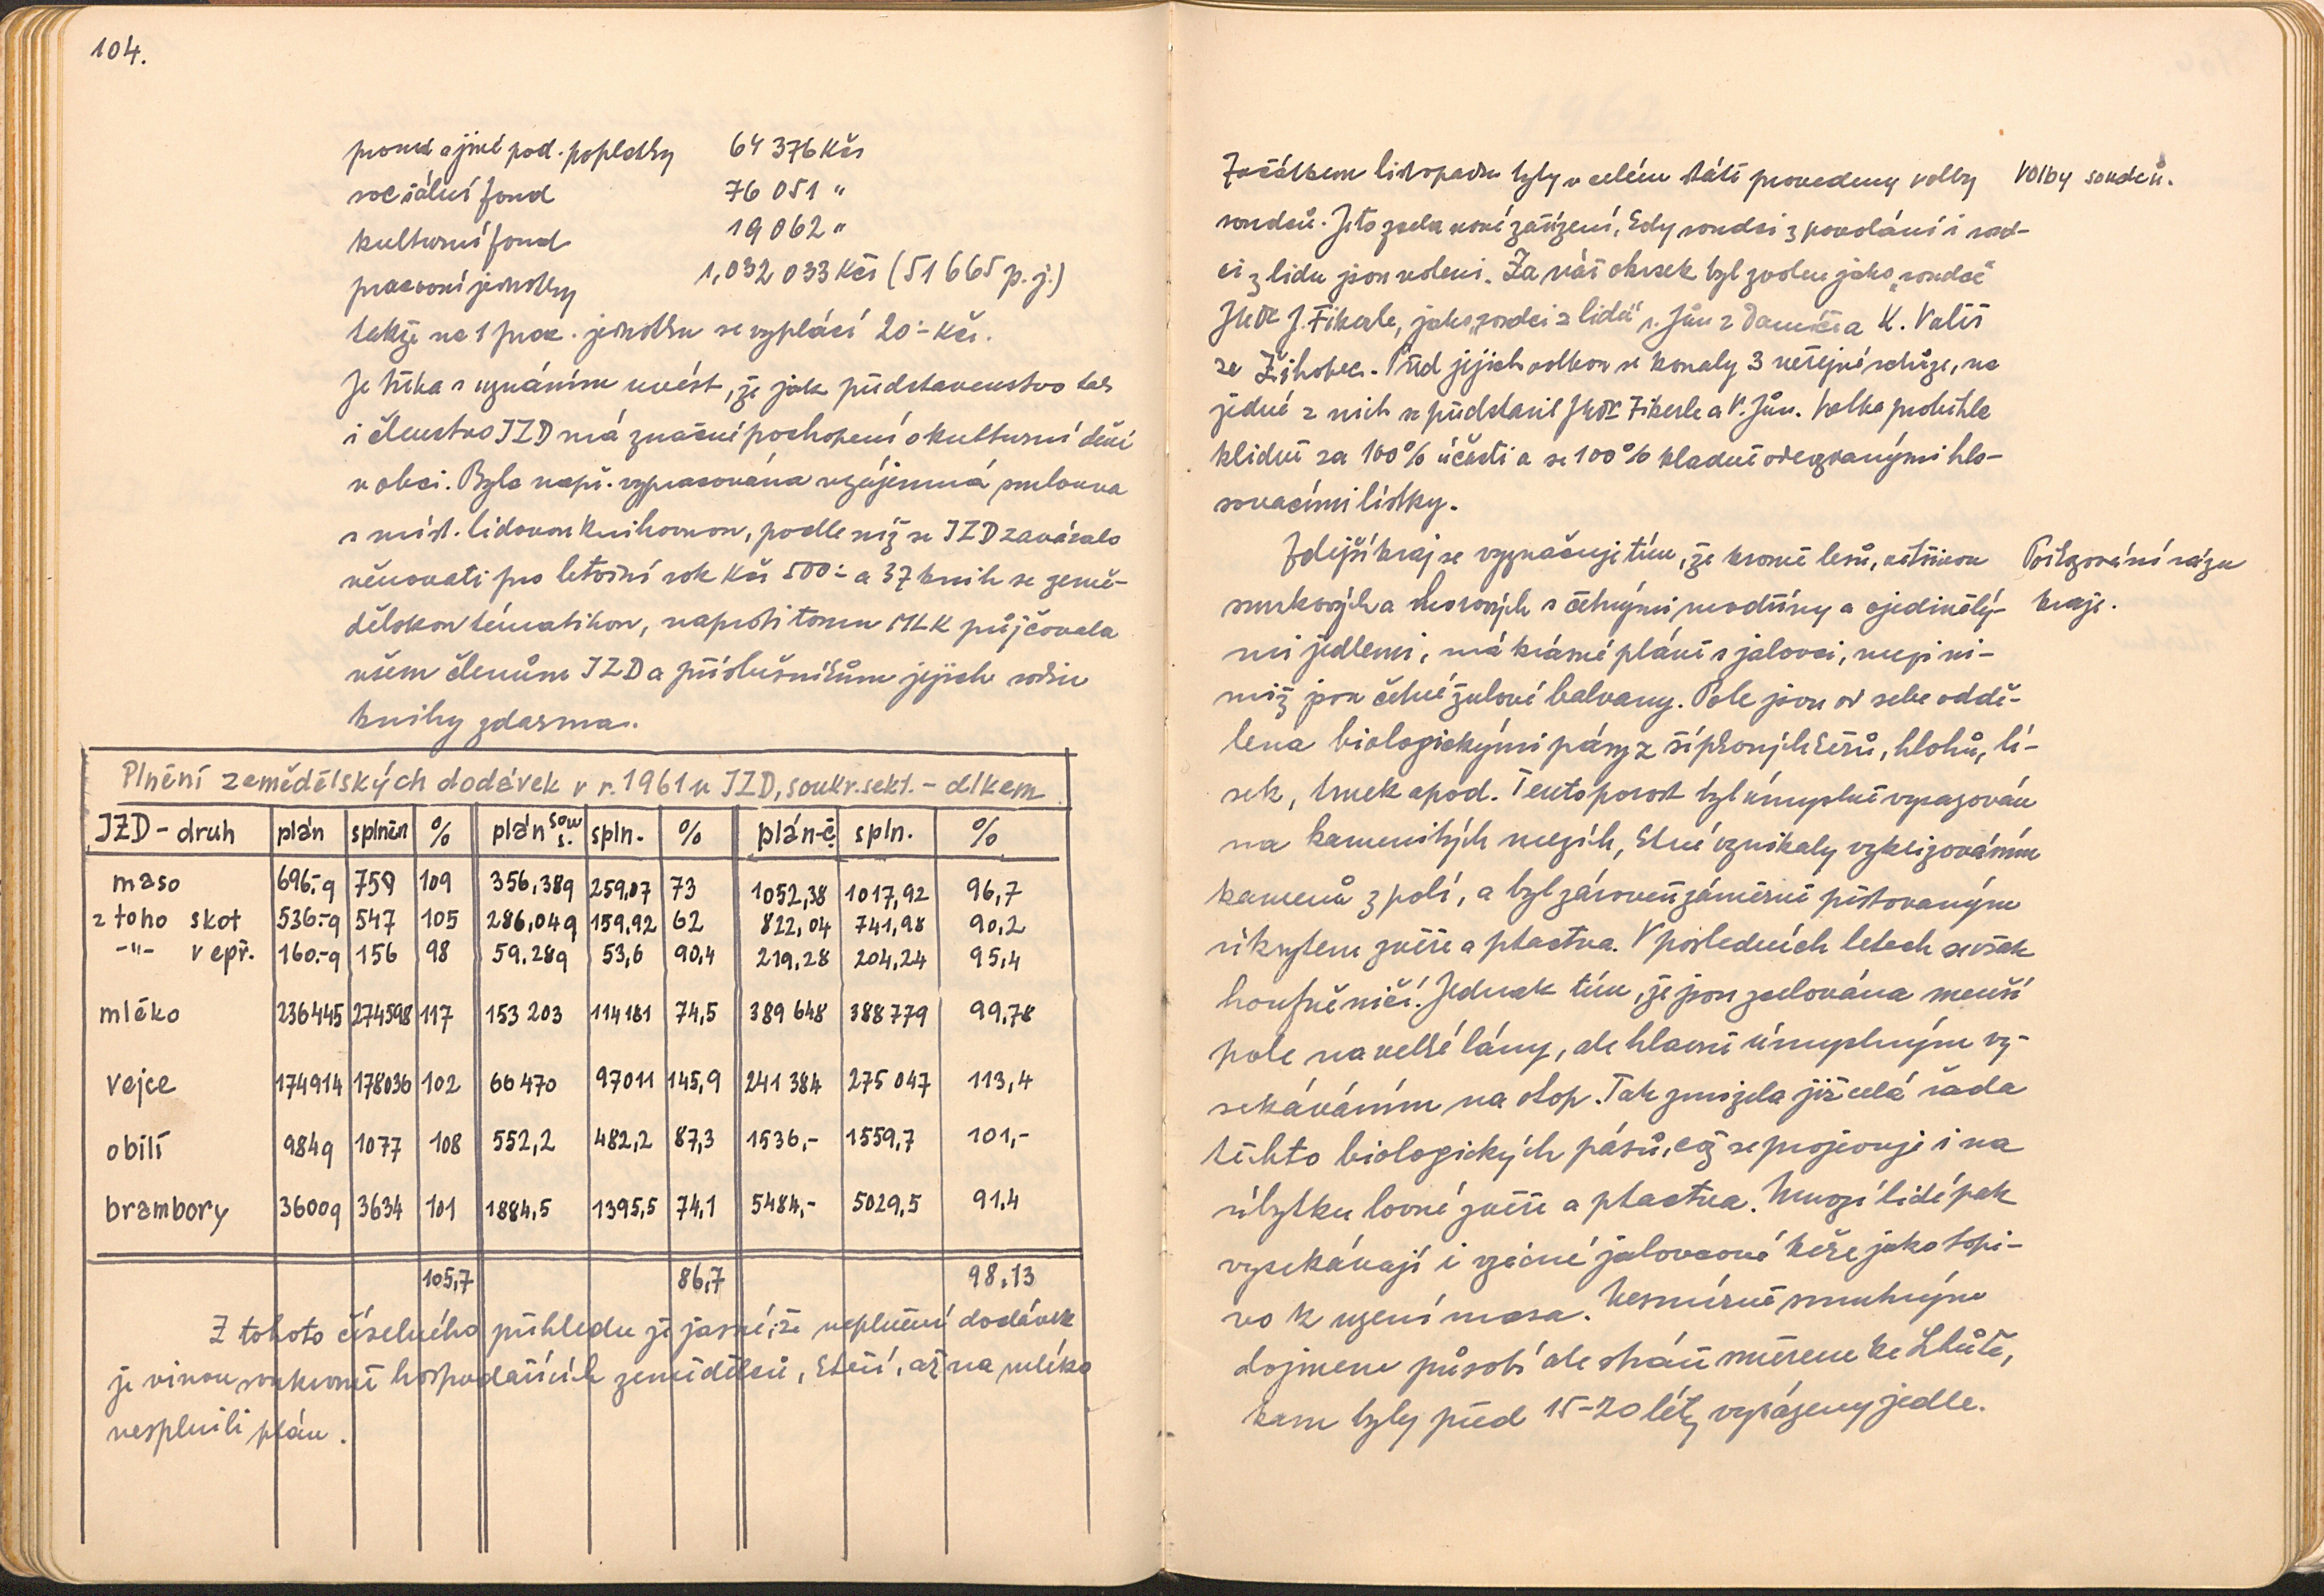 104.
a jiné pod. poplatky 64 376 Kčs
sociální fond 76 051 "
kulturní fond 19 062 "
pracovní jednotky 1,032 033 Kčs (51 665 p. j.)
takže na 1 prac. jednotku se vyplácí 20.- Kčs.
Je třeba s uznáním uvést, že jak představenstvo tak
i členstvo JZD má značné pochopení o kulturní dění
v obci. Byla např. vypracována vzájemná smlouva
s míst. lidovou knihovnou, podle níž se JZD zavázalo
věnovati pro letošní rok Kčs 500.- a 37 knih se země-
dělskou tématikou, naproti tomu MLK půjčovala
všem členům JZD a příslušníkům jejich rodin
knihy zdarma.
Plnění zemědělských dodávek v r. 1961 u JZD, soukr. sekt. - dlkem
JZD - druh plán splněn % plán souk. s. spln. % plán-č. spln. %
maso 696.-q 759 109 356,38q 259,07 73 1052,38 1017,92 96,7
z toho skot 536.-q 547 105 286,04q 159,92 62 822,04 741,98 90,2
-"- vepř. 160.-q 156 98 59.28q 53,6 90,4 219,28 204,24 95,4
mléko 236445 274598 117 153 203 114181 74,5 389 648 388 779 99,78
vejce 174914 178036 102 66 470 97011 145,9 241 384 275 047 113,4
obilí 984q 1077 108 552,2 482,2 87,3 1536,- 1559,7 101,-
brambory 3600q 3634 101 1884,5 1395,5 74,1 5484,- 5029,5 91,4
105,7 86,7 98,13
Z tohoto číselného přehledu je jasné, že neplnění dodávek
je vinou soukromě hospodařících zemědělců, kteří, až na mléko
nesplnili plán.
Začátkem listopadu byly v celém státě provedeny volby
soudců. Je to zcela nové zařízení, kdy soudci z povolání i soud-
ci z lidu jsou voleni. Za náš okrsek byl zvolen jako "soudce"
JUDr J. Fikerle, jako "soudci z lidu" s. Jůn z Damíče a K. Vališ
ze Žihobec. Před jejich volbou se konaly 3 veřejné schůze, na
jedné z nich se představil JUDr Fikerle a V. Jůn. Volba proběhla
klidně za 100% účasti a se 100% kladně odevzdanými hla-
sovacími lístky.
Volby soudců.
Zdejší kraj se vyznačuje tím, že kromě lesů, většinou
smrkových a borových s četnými modříny a ojedinělý-
mi jedlemi, má krásné pláně s jalovci, mezi ni-
miž jsou četné žulové balvany. Pole jsou od sebe oddě-
lena biologickými pásy z šípkových keřů, hlohů, lí-
sek, trnek apod. Tento porost byl úmyslně vysazován
na kamenitých mezích, které vznikaly vyklizováním
kamenů z polí, a byl zároveň záměrně pěstovaným
úkrytem zvěře a ptactva. V posledních letech se však
houfně ničí. Jednak tím, že jsou zcelována menší
pole na velké lány, ale hlavně úmyslným vy-
sekáváním na otop. Tak zmizela již celá řada
těchto biologických pásů, což se projevuje i na
úbytku lovné zvěře a ptactva. Mnozí lidé pak
vysekávají i vzácné jalovcové keře jako topi-
vo k uzení masa. Nesmírně smutným
dojmem působí ale stráň směrem ke Lhůtě,
kam byly před 15-20 léty vysázeny jedle.
rázu
kraje.